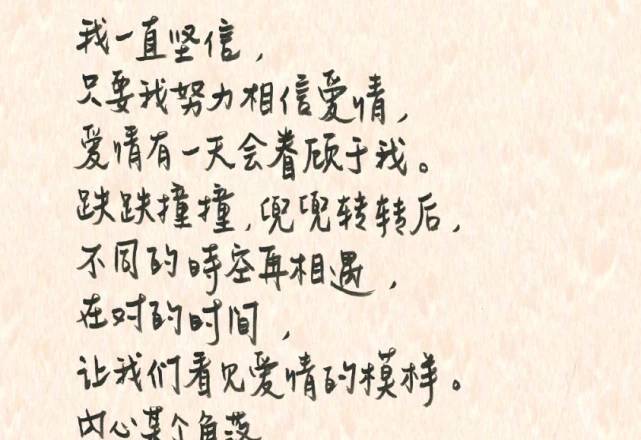 我一直坚信，
只要我努力相信爱情，
爱情有一天会眷顾于我。
跌跌撞撞，兜兜转转后，
不同的時空再相遇，
在对的时间，
让我们看见爱情的模样。
内心某个角落